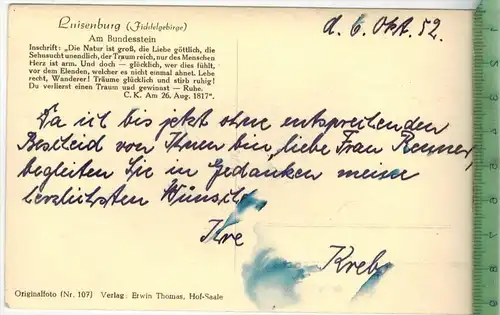 Luisenburg (Fichtelgebirge)
d. 6. Okt. 52.
Am Bundesstein
Inschrift: „Die Natur ist groß, die Liebe göttlich, die
Sehnsucht unendlich, der Traum reich, nur des Menschen
Herz ist arm. Und doch — glücklich, wer dies fühlt,
vor dem Elenden, welcher es nicht einmal ahnet. Lebe
recht, Wanderer! Träume glücklich und stirb ruhig!
Du verlierst einen Traum und gewinnst — Ruhe.
C. K. Am 26. Aug. 1817“.
Da ich bis jetzt ohne entsprechenden
Bescheid von Ihnen bin, liebe Frau Renner,
begleiten Sie in Gedanken meine
herzlichsten Wünsche
Ihre
Kreb
Originalfoto (Nr. 107) Verlag: Erwin Thomas, Hof-Saale